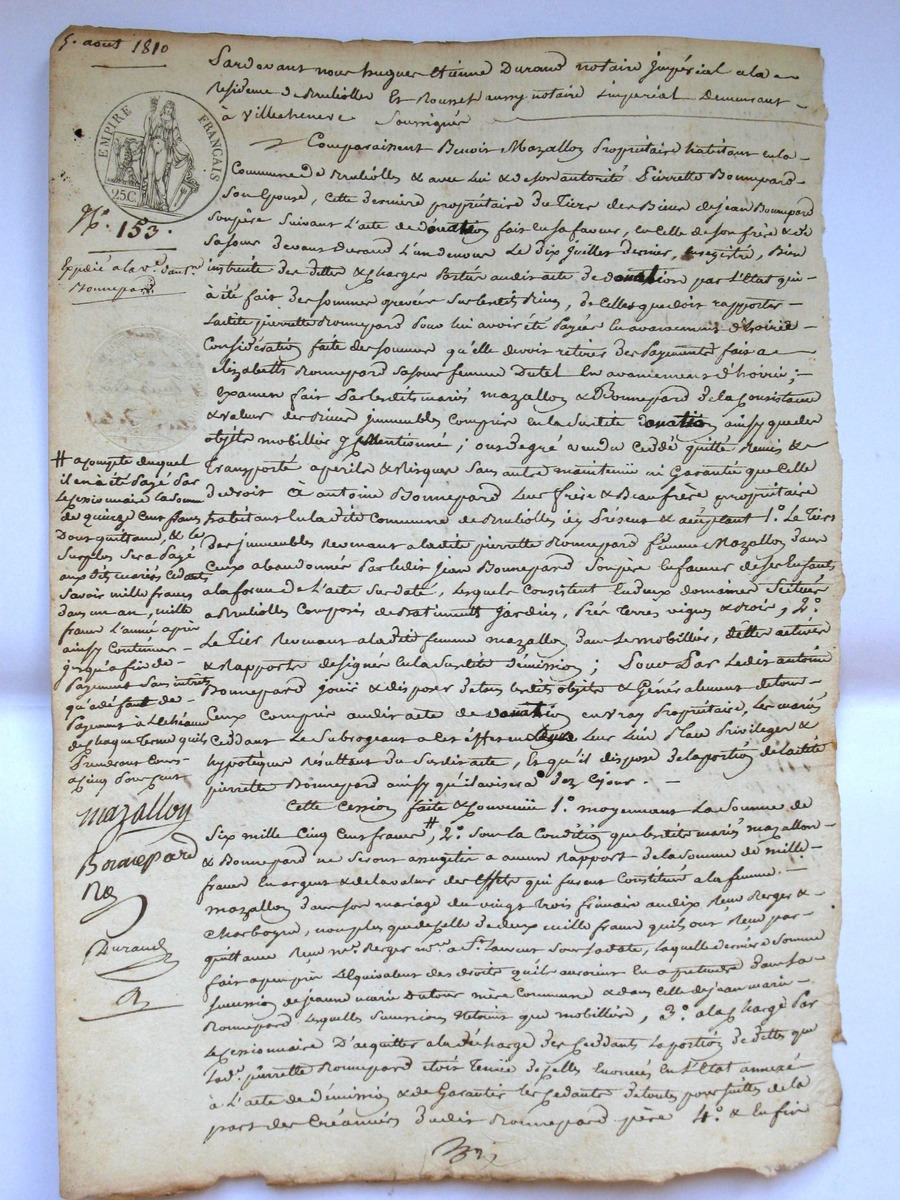 5. aout 1810
EMPIRE FRANÇAIS
25C.
N.° 153.
Expédié a la v.e d'ant.ne
Bonnepard
Pardevant nous hugues Etienne Durand notaire Impérial a la
Residence de Brulioles Et Rousset aussy notaire Impérial Demeurant
à Villechenève Soussignés
Comparaissent Benoit Mazallon Propriétaire habitant en la
Commune de Brulioles & avec Lui & de son autorité Pierrette Bonnepard
Son Epouse, Cette derniere propriétaire du Tiers des Biens de jean Bonnepard
Son père Suivant L'acte de donation fait en sa faveur, en Celle de son frère & de
Sa sœur devant Durand L'un de nous Le dix juillet dernier, enregistré, Bien
instruite des dettes & charges Portées audit acte de donation par L'Etat qui
à été fait des sommes grevées sur lesdits Biens, de Celles que doit rapporter
Ladite pierrette Bonnepard Pour lui avoir été Payées en avancement d'hoirie
Considération faite des sommes qu'elle devoit retirer des Payements fait a
Elizabeth Bonnepard Sa sœur femme Dutel En avancement d'hoirie ;
Examen fait Par lesdits mariés mazallon & Bonnepard de la Consistance
& valeur des Biens immeubles Compris en la Susdite donation ainsy que des
objets mobilliers y Mentionné ; ont de gré a vendu Cédé quitté Remis &
Transporté a perils & Risques Sans autre maintenue ni Garantie que Celle
de droit à antoine Bonnepard Leur frère & Beaufrère propriétaire
habitant en la dite Commune de Brulioles icy Présent & acceptant 1.° Le Tiers
des immeubles Revenant a ladite pierrette Bonnepard femme Mazallon dans
Ceux abandonnés Par ledit Jean Bonnepard Son père En faveur de ses Enfants
a la forme de L'acte Susdaté, Lesquels Consistent En deux domaines Scitués
a Brulioles Composés de Batiments Jardins, Prés Terres vignes & Bois, 2.°
Le Tier Revenant a la dite femme mazallon dans Le mobillier, dettes actives
& Rapports designés en la Susdite démission ; Pour Par Ledit antoine
Bonnepard jouir & disposer de tous lesdits objets & Généralement de tous
Ceux Compris audit acte de donation en vray Propriétaire, Les mariés
Ceddant Le Subrogeant a Cet effet en Leur Lieu Place Privileges &
hypoteques Resultant du Susdit acte, Et qu'il dispose de la portion de ladite
pierrette Bonnepard ainsy qu'il avisera dez Ce jour.
Cette Cession faite & Convenüe 1.° moyennant La Somme de
Six mille Cinq Cent francs #, 2.° Sous la Condition que lesdits mariés mazallon
& Bonnepard ne Seront assujetier a aucun Rapport de la Somme de mille
francs En argent & de la valeur des Effets qui furent Constitués a la femme
mazallon dans son mariage du vingt trois frimaire an dix Reçu Berger &
Charbogne, non plus que de Celle de deux mille francs qu'ils ont Reçu par
quittance Reçue M.e Berger N.re a S.t Laurent Sous sa date, laquelle derniere Somme
fait apeu près L'Equivalent des droits qu'ils auroient En a prétendre dans La
Succession de jeanne marie Dutour mère Commune & dans Celle de jean marie
Bonnepard Lesquelles Successions n'étoient que mobillière, 3.° a la Charge Par
Le Cessionnaire D'aquitter a la décharge des Ceddants La portion de dettes que
lad.e pierrette Bonnepard étoit Tenüe de Celles Enoncés En L'Etat annexé
à L'acte de démission & de Garantir les Cédants de toutes poursuittes de la
part des Créanciers dudit Bonnepard père 4.° & Enfin
# a Compte duquel
il en à été Payé Par
Le Cessionnaire la Somme
de quinze Cent francs
Dont quittance, & le
Surplus Sera Payé
aux dits mariés Cédants
Savoir mille francs
dans un an, mille
francs L'année après
ainsy Continuer
jusqu'a fin de
Payement Sans intérêts
qu'a défaut de
Payement a L'échéance
de chaque Terme qu'ils
Prendront Cours
a Cinq Pour Cent
Mazallon
Bonnepard
Durand